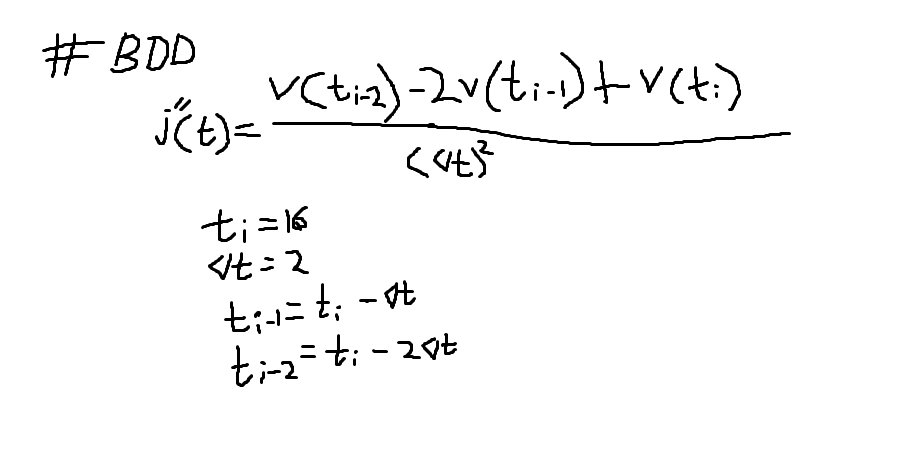 # BDD
j''(t) = (v(t_{i-2}) - 2v(t_{i-1}) + v(t_i)) / (Δt)^2
t_i = 16
Δt = 2
t_{i-1} = t_i - Δt
t_{i-2} = t_i - 2Δt